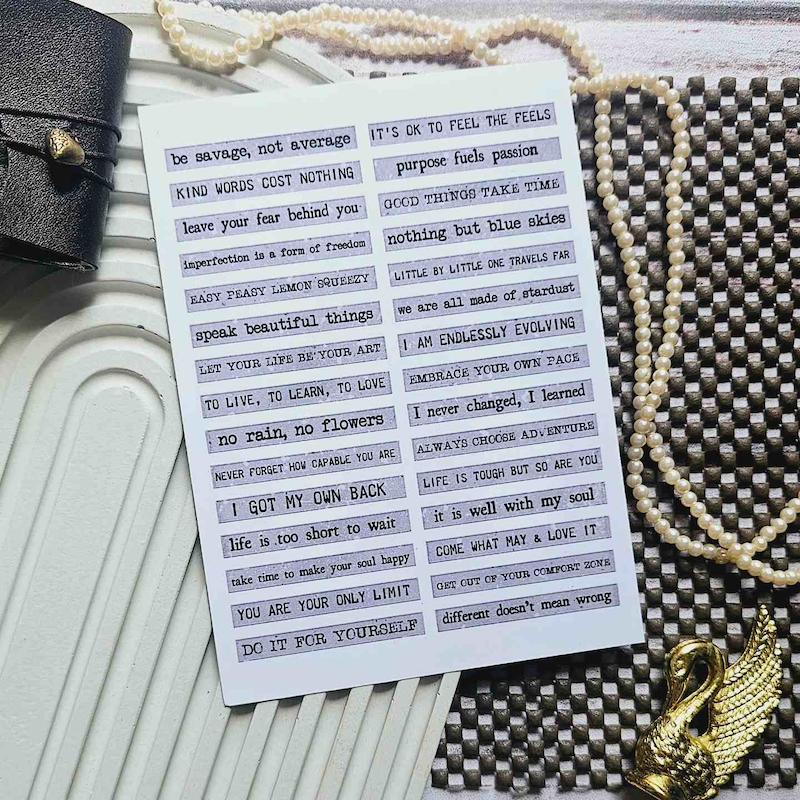 be savage, not average
KIND WORDS COST NOTHING
leave your fear behind you
imperfection is a form of freedom
EASY PEASY LEMON SQUEEZY
speak beautiful things
LET YOUR LIFE BE YOUR ART
TO LIVE, TO LEARN, TO LOVE
no rain, no flowers
NEVER FORGET HOW CAPABLE YOU ARE
I GOT MY OWN BACK
life is too short to wait
take time to make your soul happy
YOU ARE YOUR ONLY LIMIT
DO IT FOR YOURSELF
IT'S OK TO FEEL THE FEELS
purpose fuels passion
GOOD THINGS TAKE TIME
nothing but blue skies
LITTLE BY LITTLE ONE TRAVELS FAR
we are all made of stardust
I AM ENDLESSLY EVOLVING
EMBRACE YOUR OWN PACE
I never changed, I learned
ALWAYS CHOOSE ADVENTURE
LIFE IS TOUGH BUT SO ARE YOU
it is well with my soul
COME WHAT MAY & LOVE IT
GET OUT OF YOUR COMFORT ZONE
different doesn't mean wrong